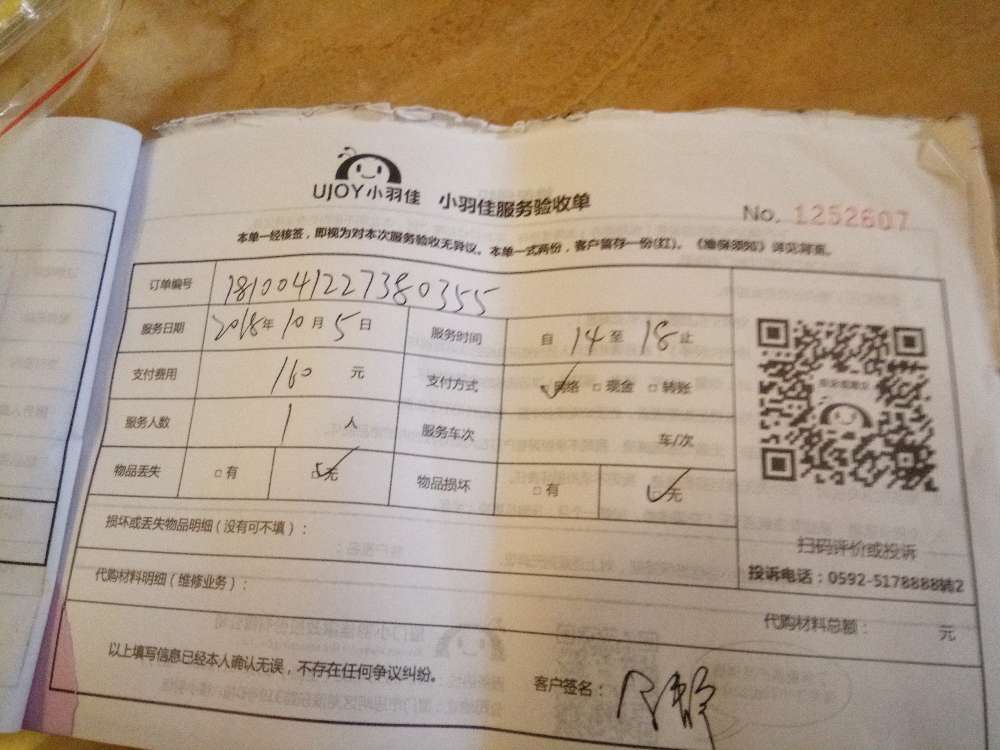 UJOY小羽佳 小羽佳服务验收单
No. 1252607
本单一经核签，即视为对本次服务验收无异议。本单一式两份，客户留存一份(红)。《维保须知》详见背面。
订单编号 1810041227380355
服务日期 2018年10月5日 服务时间 自 14 至 18 止
支付费用 160 元 支付方式 网络 □现金 □转账
服务人数 1 人 服务车次 车/次
物品丢失 □有 无 物品损坏 □有 无
损坏或丢失物品明细（没有可不填）：
扫码评价或投诉
投诉电话：0592-5178888转2
代购材料明细（维修业务）：
代购材料总额： 元
以上填写信息已经本人确认无误，不存在任何争议纠纷。
客户签名：